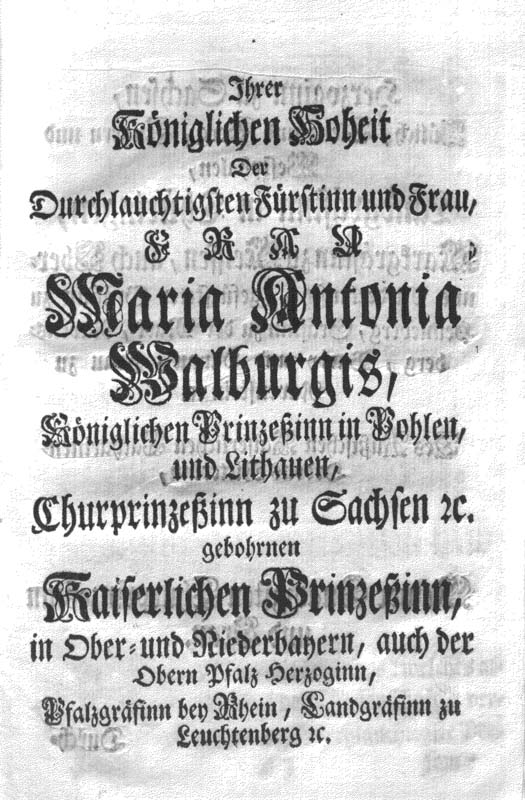 Ihrer
Königlichen Hoheit
Der
Durchlauchtigsten Fürstinn und Frau,
F R A U
Maria Antonia
Walburgis,
Königlichen Prinzeßinn in Pohlen,
und Lithauen,
Churprinzeßinn zu Sachsen ꝛc.
gebohrnen
Kaiserlichen Prinzeßinn,
in Ober- und Niederbayern, auch der
Obern Pfalz Herzoginn,
Pfalzgräfinn bey Rhein, Landgräfinn zu
Leuchtenberg ꝛc.